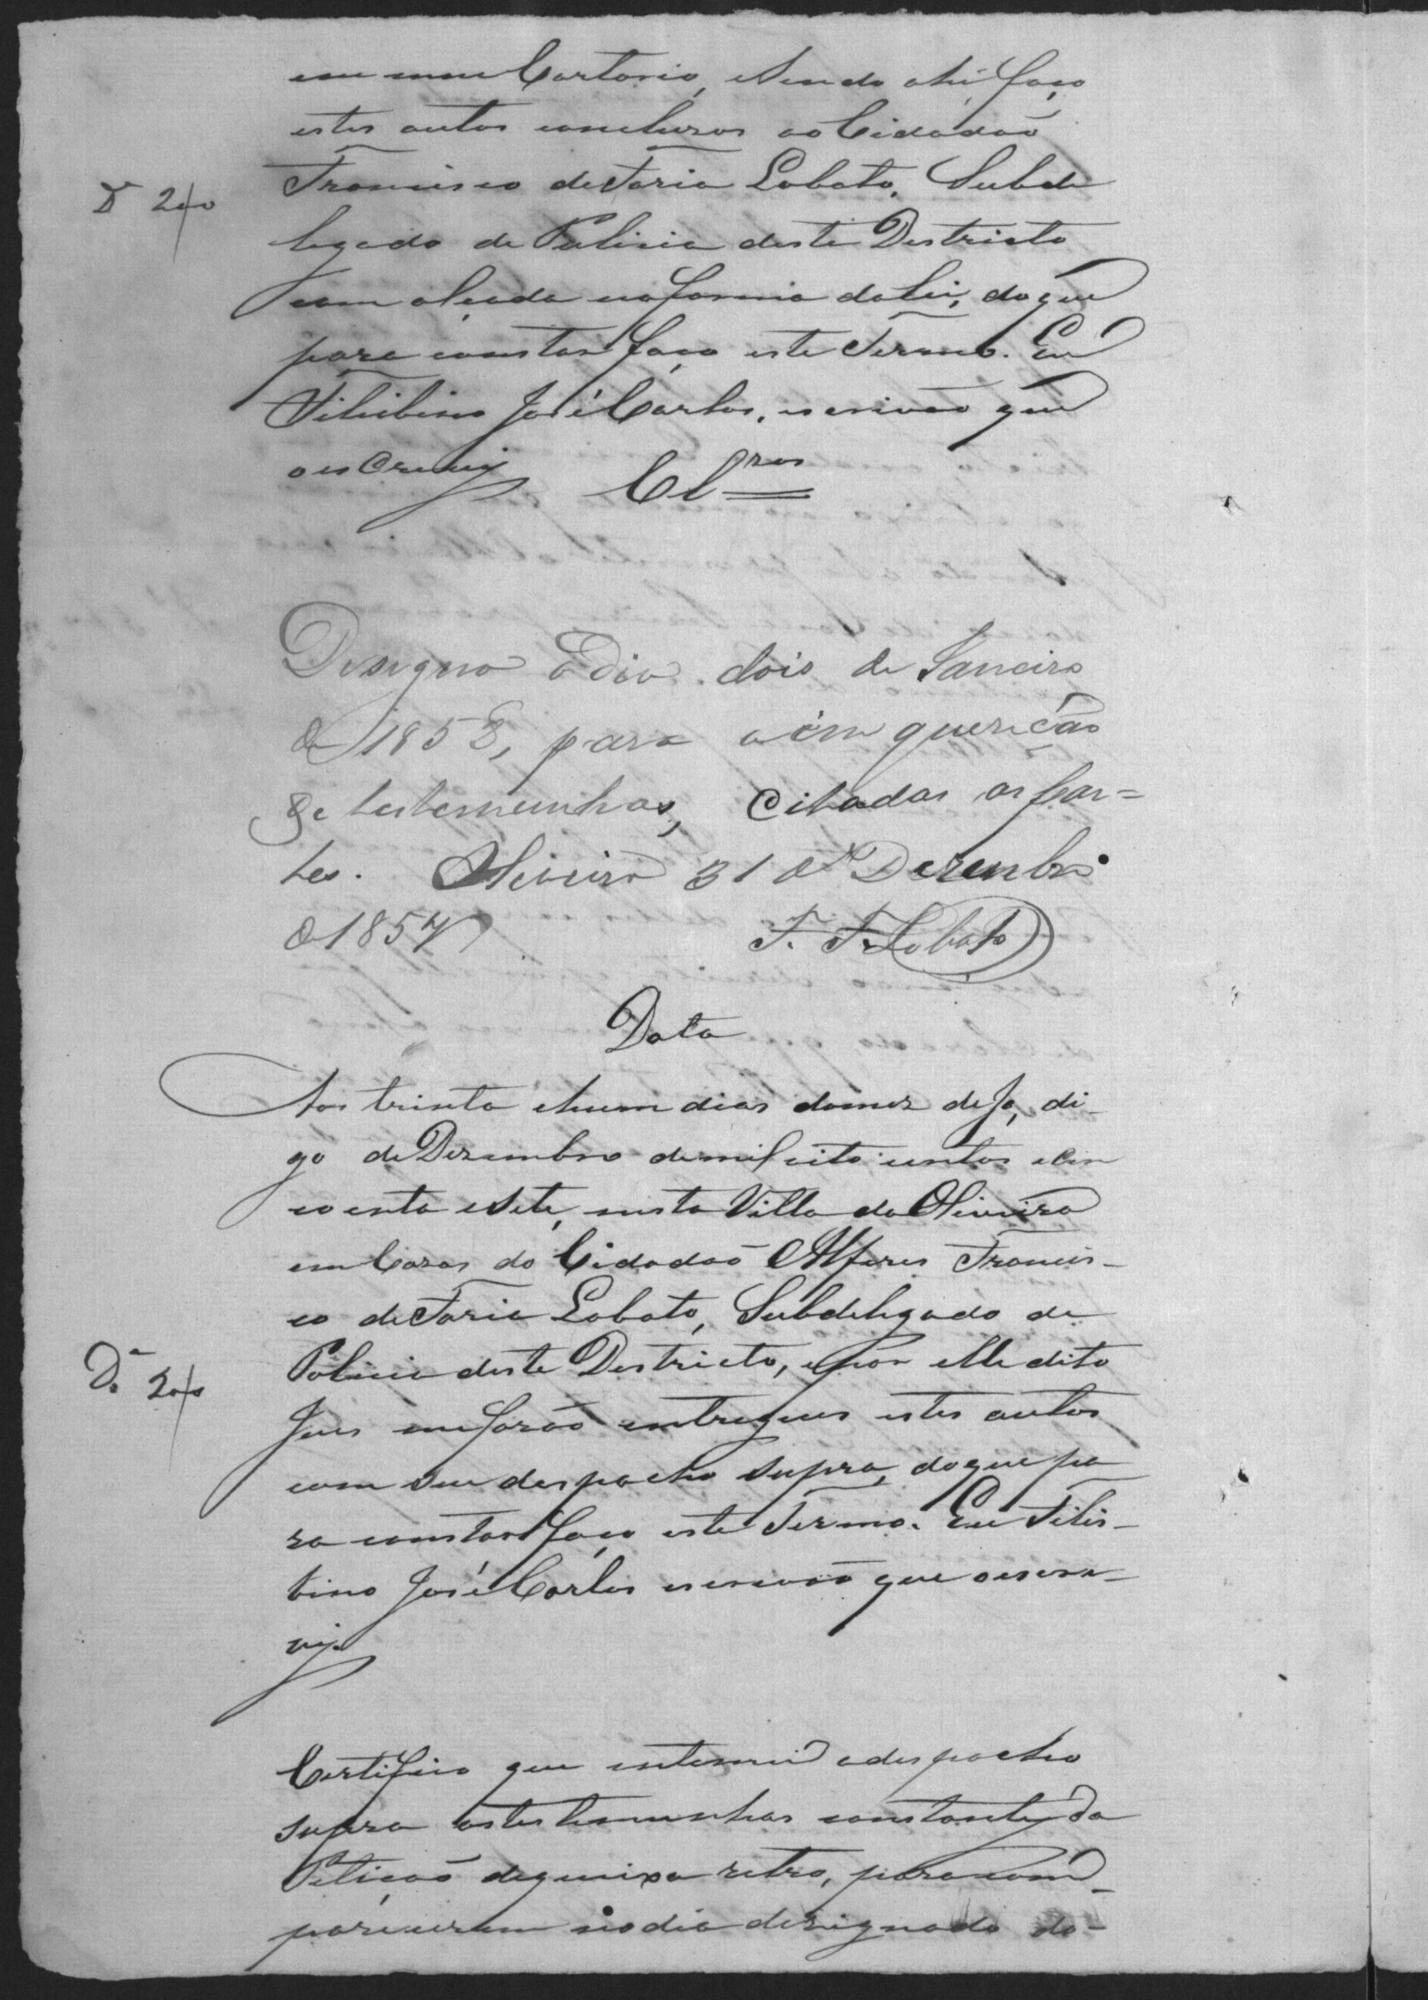 em meu Cartorio, e sendo ahi faço
estes autos concluzos ao Cidadaõ
Francisco de Faria Lobato, Subde
legado de Policia deste Destricto
com alçada na forma da lei, do que
para constar faço este Termo. Eu
Filisbino José Carlos, escrivaõ que
o escrevij
Cl.ros
Designo o dia dois de Janeiro
de 1858, para a inquerição
de testemunhas, citadas as par=
tes. Oliveira 31 de Dezembro
de 1857
F. F. Lobato
Data
Aos trinta e hum dias do mez de Ja, di-
go de Dezembro de mil oito centos e cin
coenta e Sete, nesta Villa da Oliveira
em Cazas do Cidadaõ Alferes Francis-
co de Faria Lobato, Subdelegado de
Policia deste Destricto, e por elle dito
Juis me foraõ entregues estes autos
com seu despacho supra, do que pa
ra constar faço este Termo. Eu Filis-
bino José Carlos escrivaõ que o escre-
vij
Certifico que intimei o despacho
supra as testemunhas constantes da
Petiçaõ de queixa retro, para com-
parecerem no dia designado do-
D.a 240